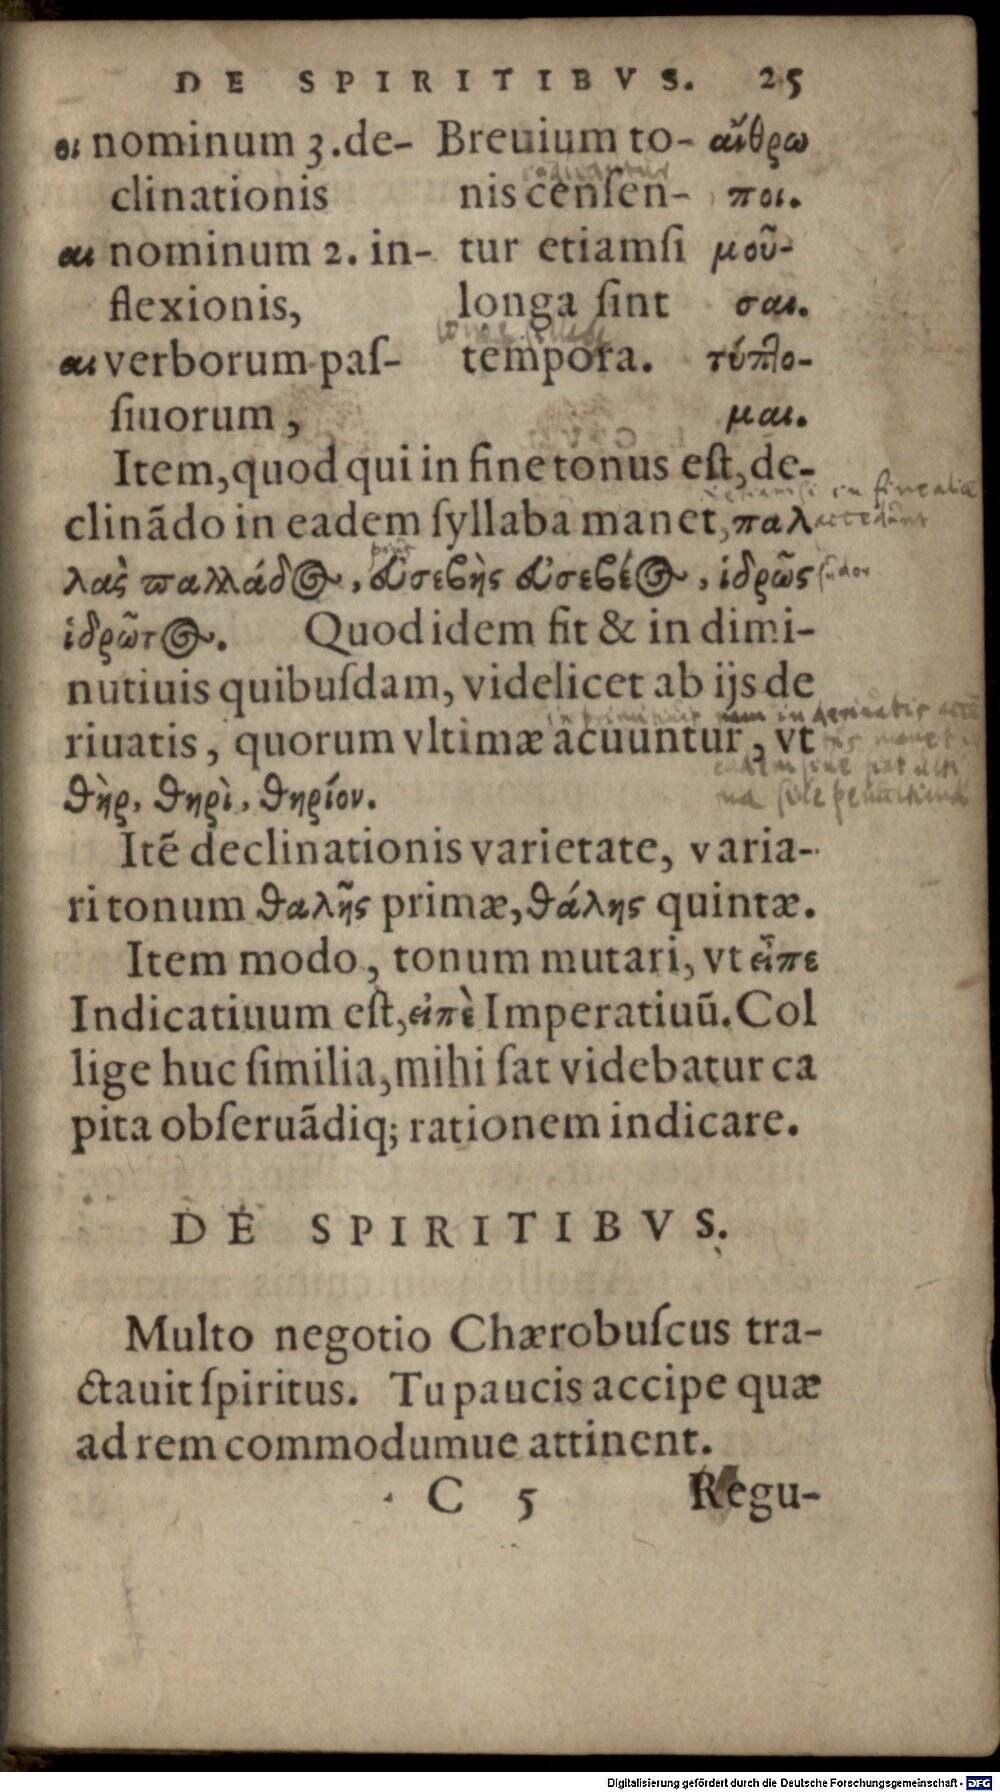 DE SPIRITIBVS. 25
οι nominum 3. de- Breuium to- ἄνθρω
clinationis nis cenſen- ποι.
αι nominum 2. in- tur etiamſi μοῦ-
flexionis, longa ſint σαι.
αι verborum paſ- tempora. τύπτο-
ſiuorum, μαι.
Item, quod qui in fine tonus eſt, de-
clinādo in eadem ſyllaba manet, παλ
λὰς παλλάδος, εὐσεβὴς εὐσεβέος, ἱδρῶς
ἱδρῶτος. Quod idem fit & in dimi-
nutiuis quibuſdam, videlicet ab ijs de
riuatis, quorum vltimæ acuuntur, vt
θὴρ, θηρὶ, θηρίον.
Itē declinationis varietate, varia-
ri tonum θαλῆς primæ, θάλης quintæ.
Item modo, tonum mutari, vt εἶπε
Indicatiuum eſt, εἰπὲ Imperatiuū. Col
lige huc ſimilia, mihi ſat videbatur ca
pita obſeruādiq; rationem indicare.
DE SPIRITIBVS.
Multo negotio Chærobuſcus tra-
ctauit ſpiritus. Tu paucis accipe quæ
ad rem commodumue attinent.
C 5 Regu-
Digitalisierung gefördert durch die Deutsche Forschungsgemeinschaft - DFG